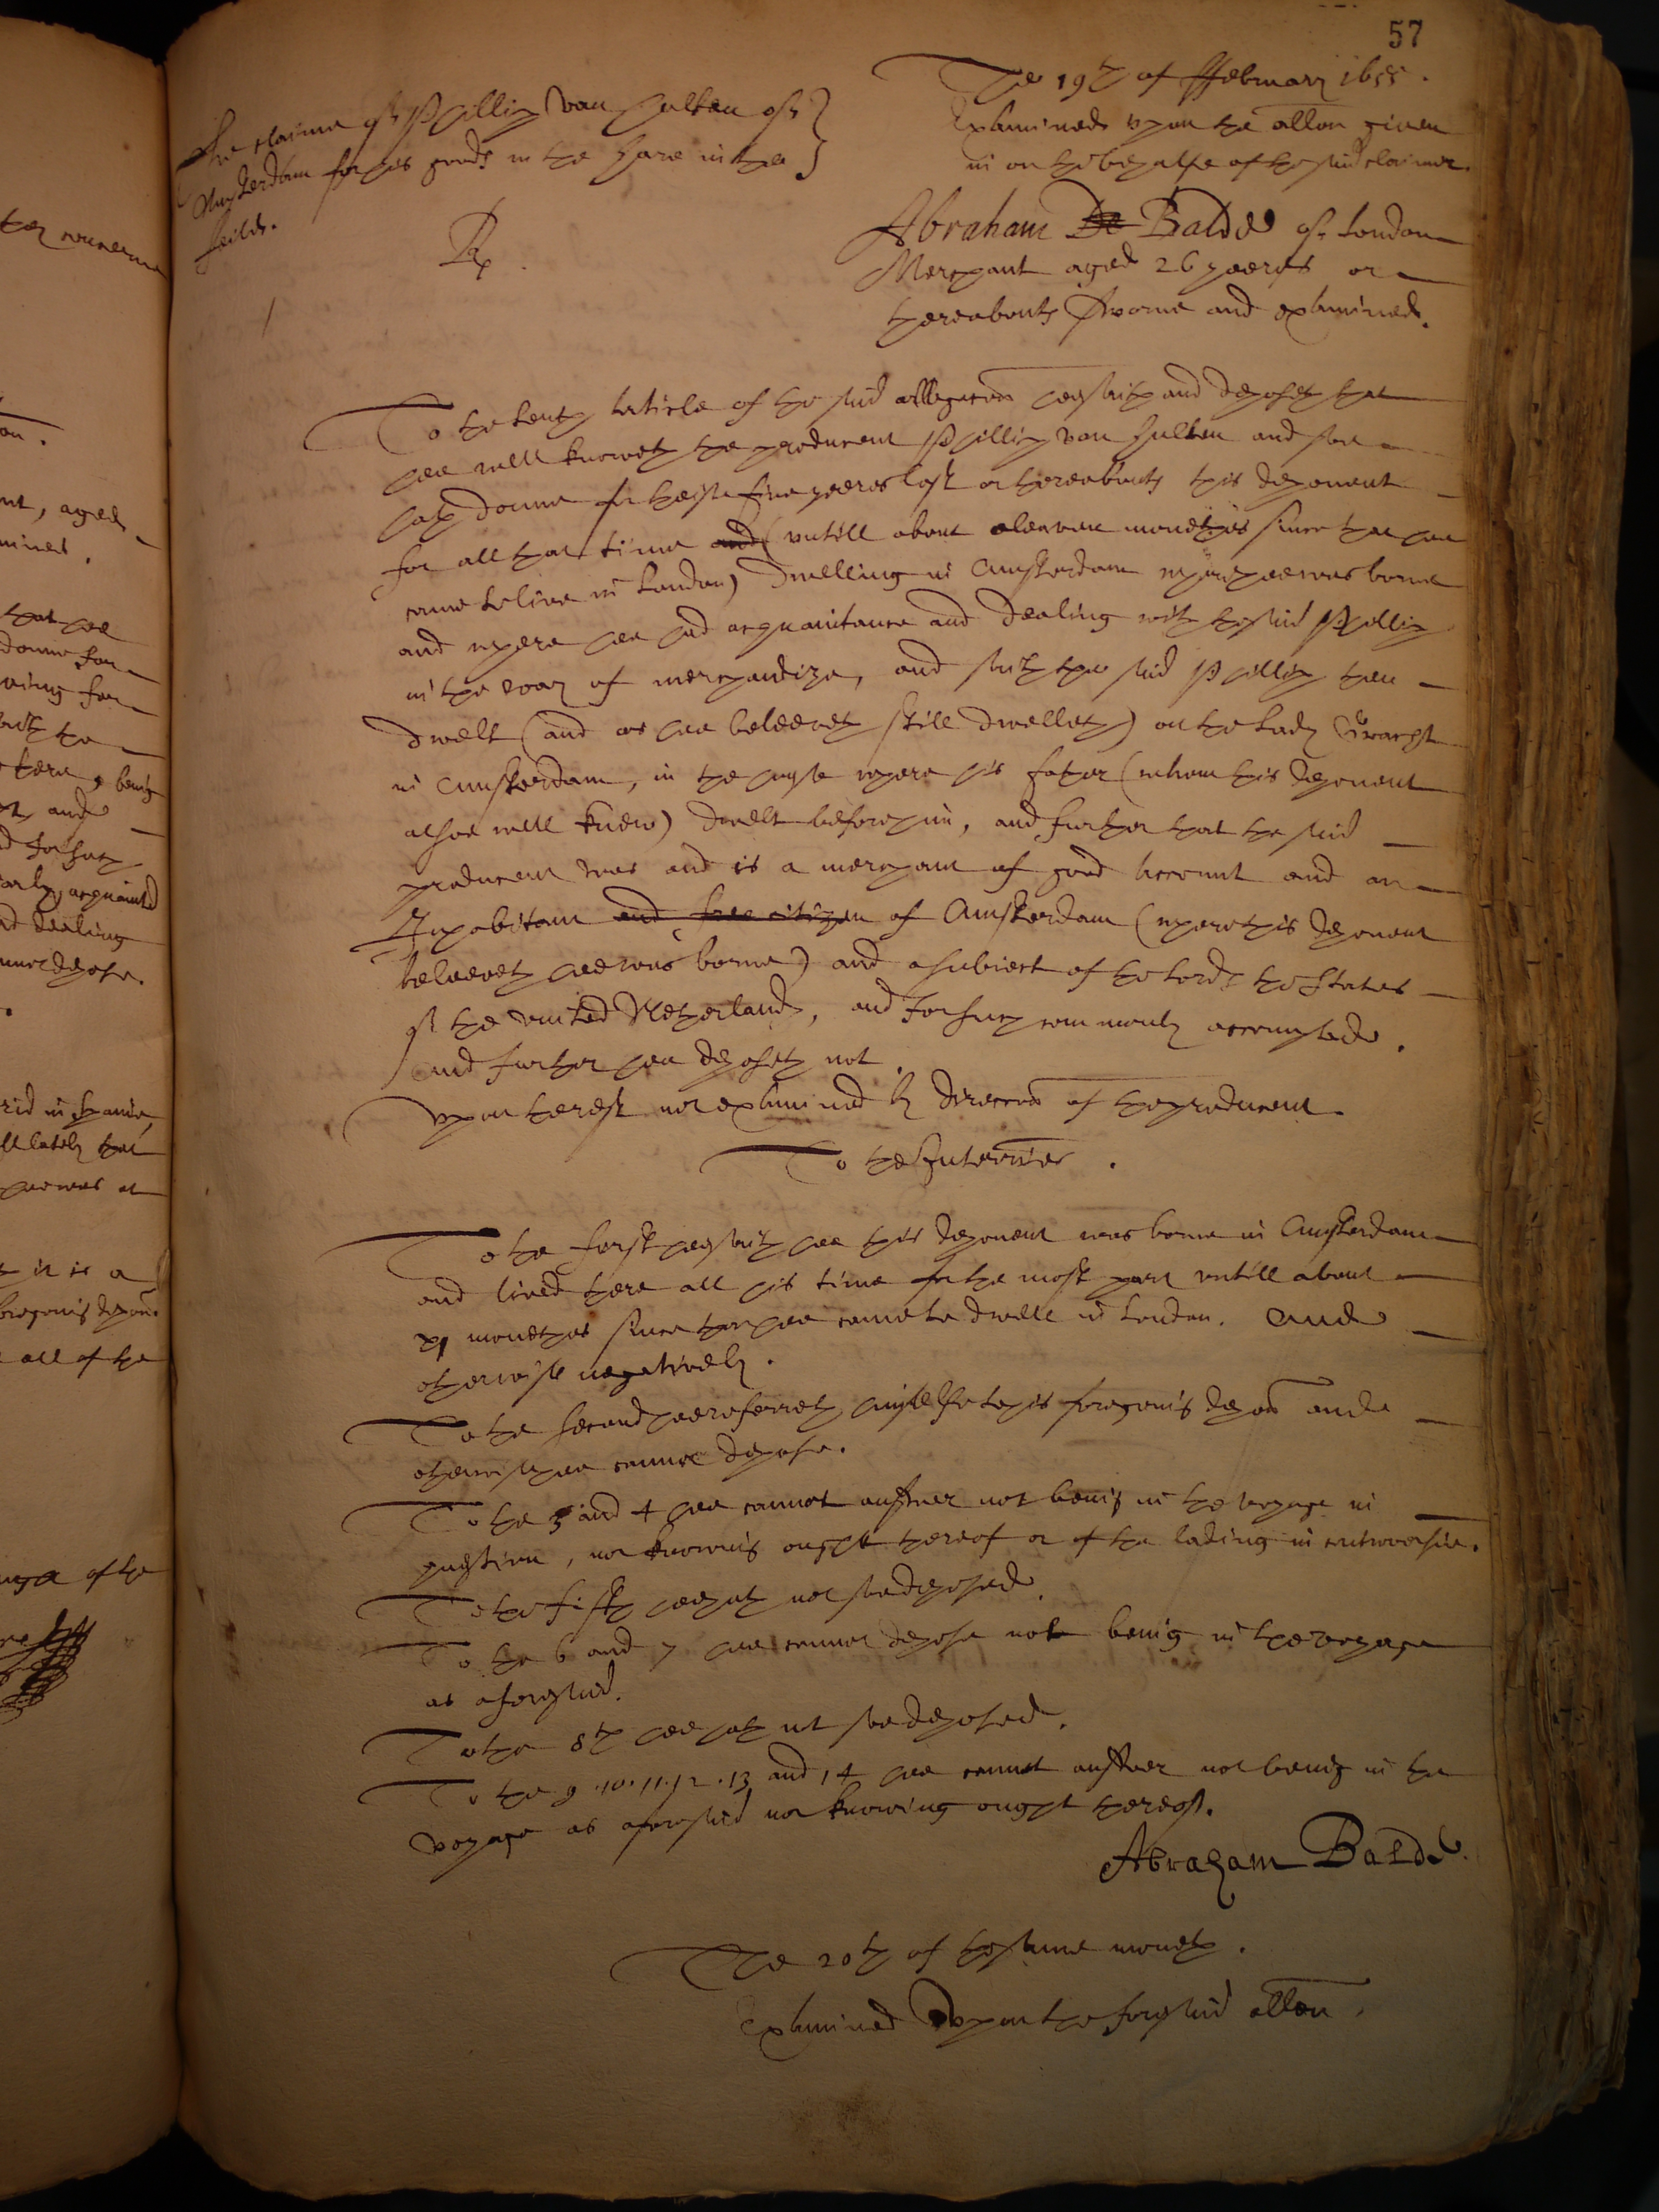 57
The 19th of ffebruary 1655.
The claime of Phillip van Hulten of
Amsterdam for his goods in the Hare in the
feilde.
Examined upon the allon given
in on the behalfe of the said claimer.
Rp.
1
Abraham De Balde of London
Merchant aged 26 yeeres or
thereabouts sworne and examined.
To the tenth article of the said allegacon hee saith and deposeth that
hee well knoweth the producent Phillip van Hulten and soe
hath donne for theise five yeeres last or thereabouts this deponent
for all that time and (untill about eleaven monethes since that hee
came to live in London) dwelling in Amsterdam where hee was borne
and where hee had acquaintance and dealing with the said Phillip
in the way of merchandize, and saith the said Phillip then
dwelt (and as hee beleeveth still dwelleth) on the Gracht
in Amsterdam, in the house where his father (whom this deponent
alsoe well knew) dwelt before him, and further that the said
producent was and is a merchant of good account and an
Inhabitant and free citizen of Amsterdam (where this deponent
beleeveth hee was borne) and a subiect of the Lords the States
of the united Netherlands, and for such commonly accompted.
And further hee deposeth not.
Upon the rest not examined by direccon of the producent.
To the Interries.
To the first hee saith hee this deponent was borne in Amsterdam
and lived there all his time for the most part untill about
xj monethes since that hee came to dwell in London. And
otherwise negatively.
To the second hee referreth himselfe to his foregoing depon and
otherwise hee cannot depose.
To the 3 and 4 hee cannot answer not being in the voyage in
question, nor knowing ought thereof or of the lading in controversie.
To the fifth hee hath not soe deposed.
To the 6 and 7 hee cannot depose not being in the voyage
as aforesaid.
To the 8th hee hath not soe deposed.
To the 9. 10. 11. 12. 13 and 14 hee cannot answer not being in the
voyage as aforesaid nor knowing ought thereof.
Abraham Balde.
The 20th of the same moneth.
Examined upon the foresaid allon.